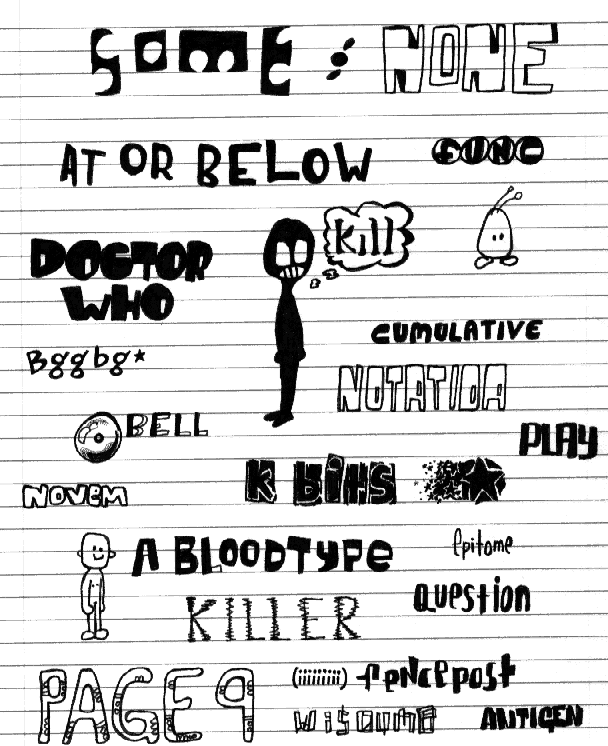 SOME : NONE
AT OR BELOW
FUNC
Kill
DOCTOR
WHO
CUMULATIVE
Bggbg*
BELL
PLAY
K BITS
NOVEM
A BLOODTYPE
Epitome
KILLER
question
PAGE 9
fencepost
ANTIGEN